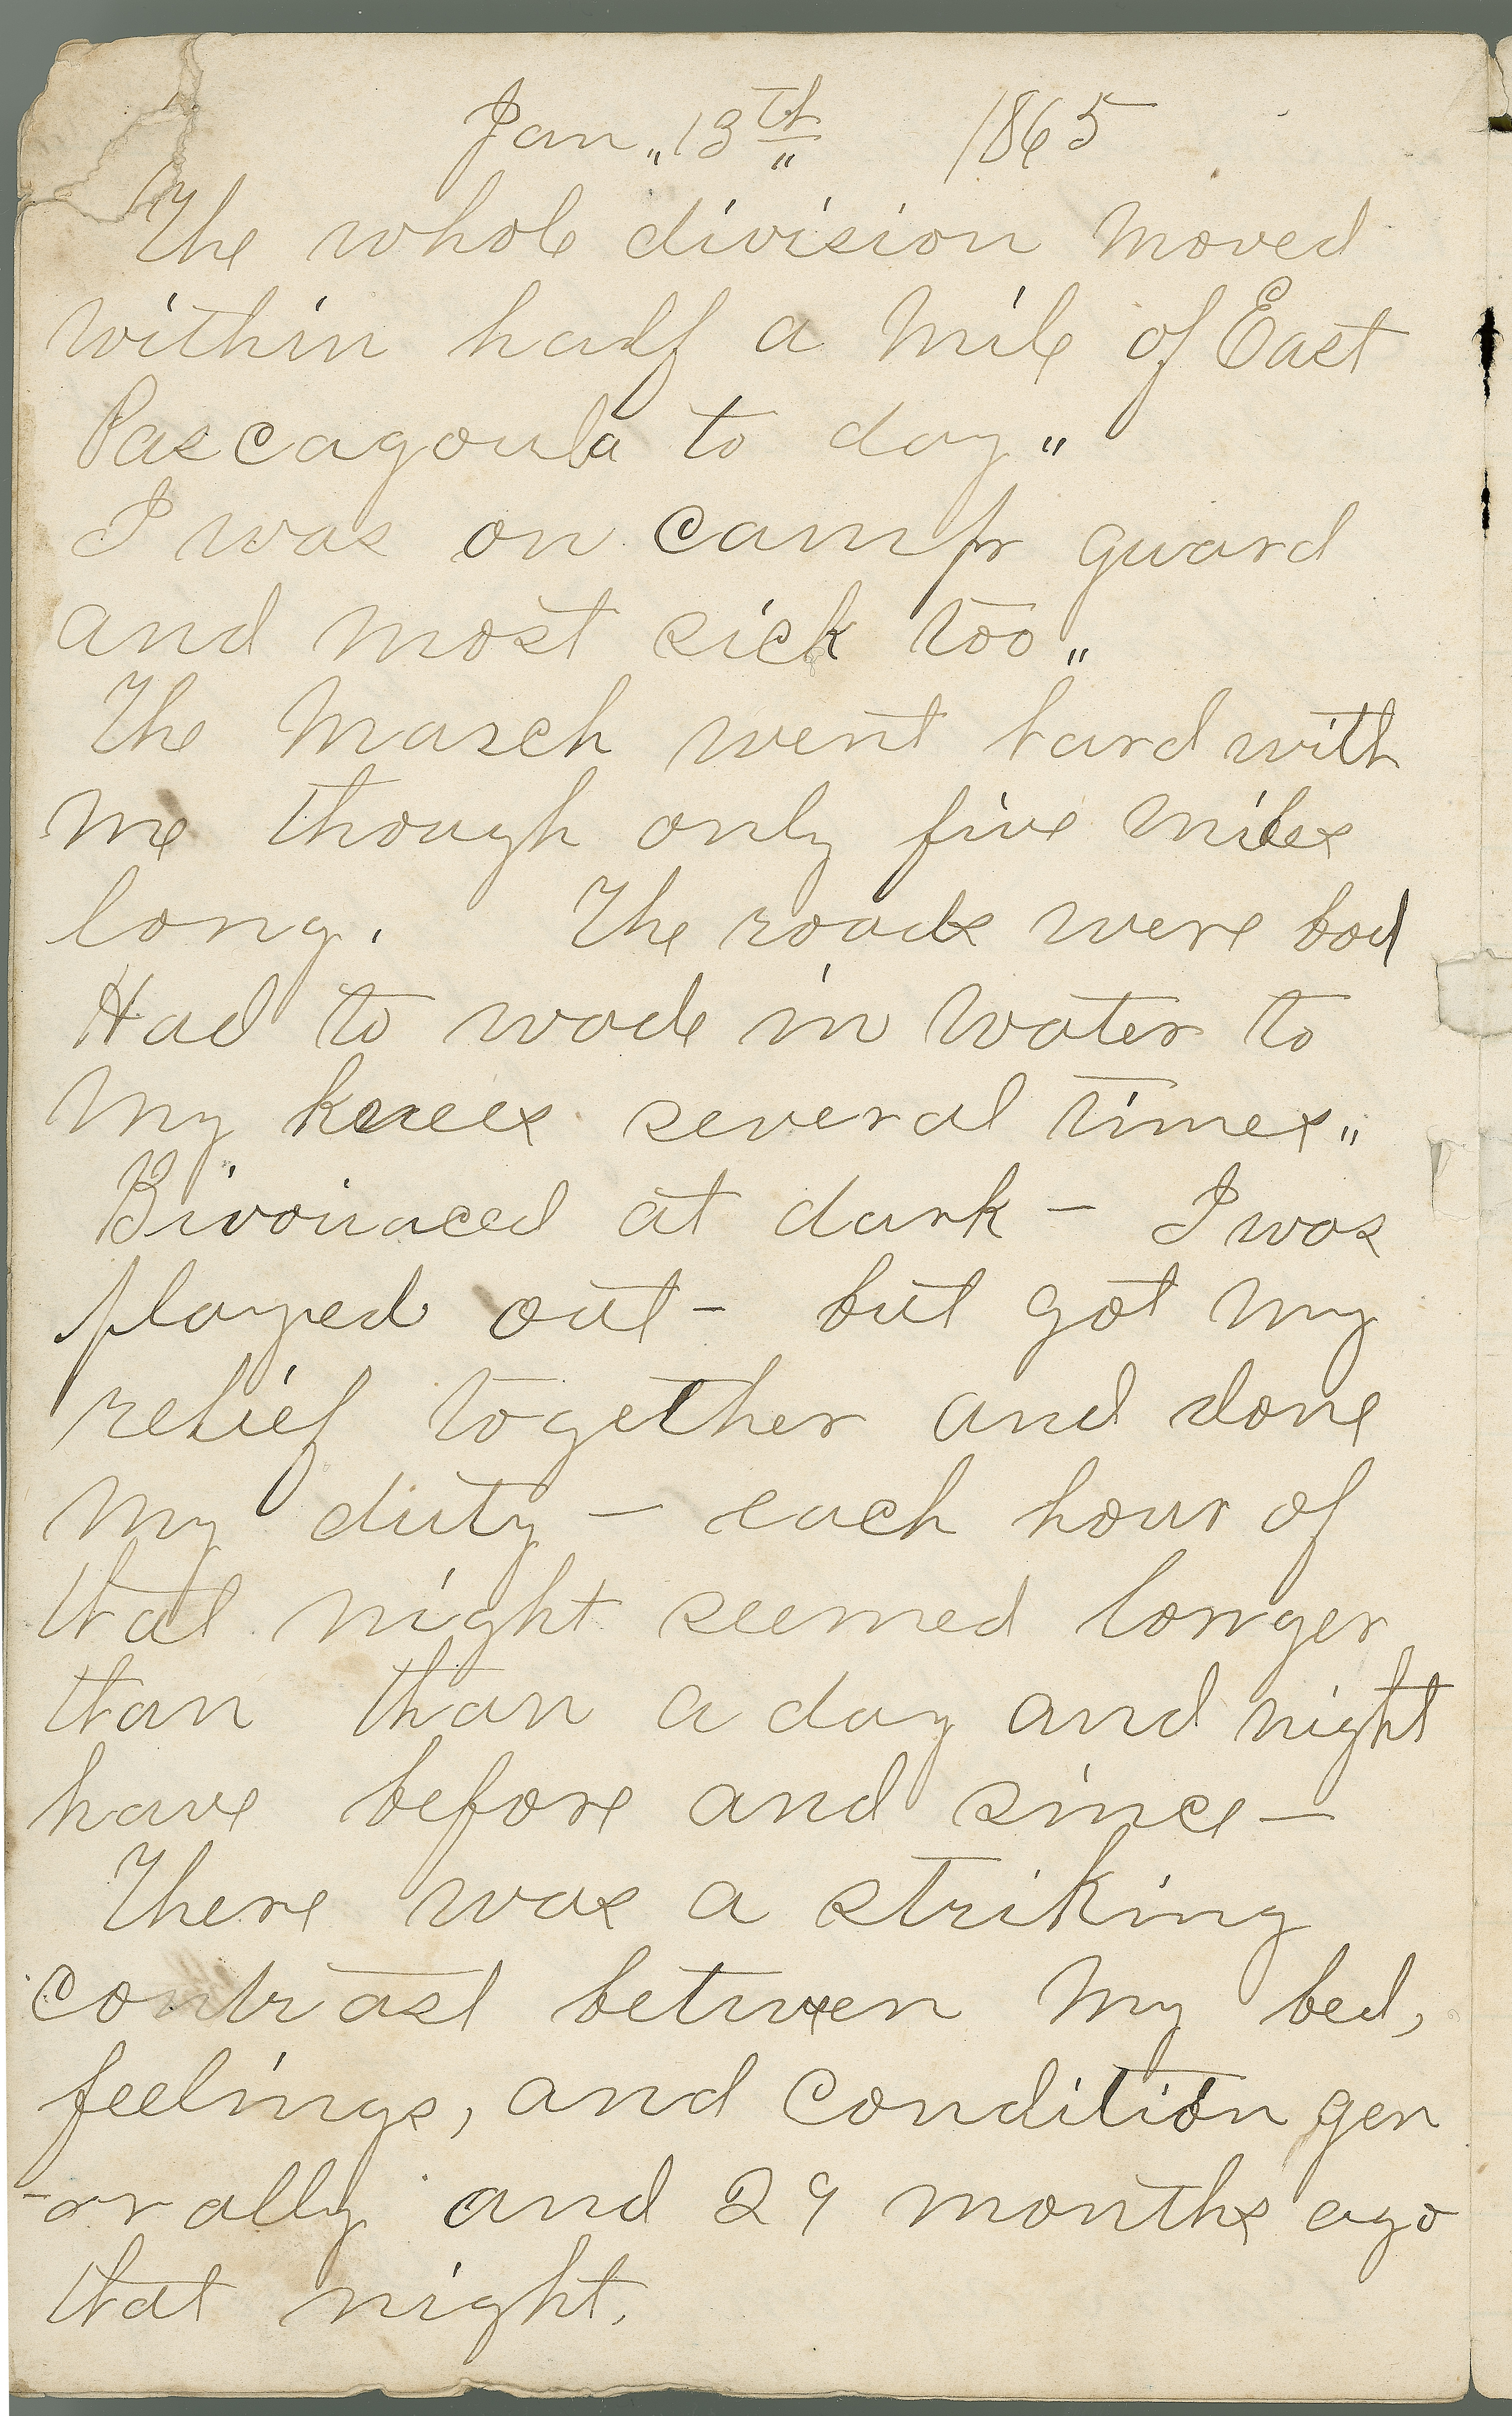 Jan „ 13th 1865
The whole division moved
within half a mile of East
Pascagoula to day "
I was on camp guard
and most sick too „
The march went hard with
me though only five miles
long. The roads were bad
Had to wade in water to
my knees several times "
Bivouaced at dark — I was
played out - but got my
relief together and done
my duty — each hour of
that night seemed longer
than than a day and night
have before and since —
There was a striking
contrast between my bed,
feelings, and condition gen
-erally and 29 months ago
that night.